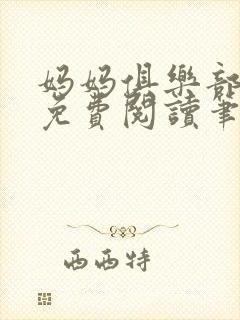 妈妈俱樂部
免費閱讀筆
西西特